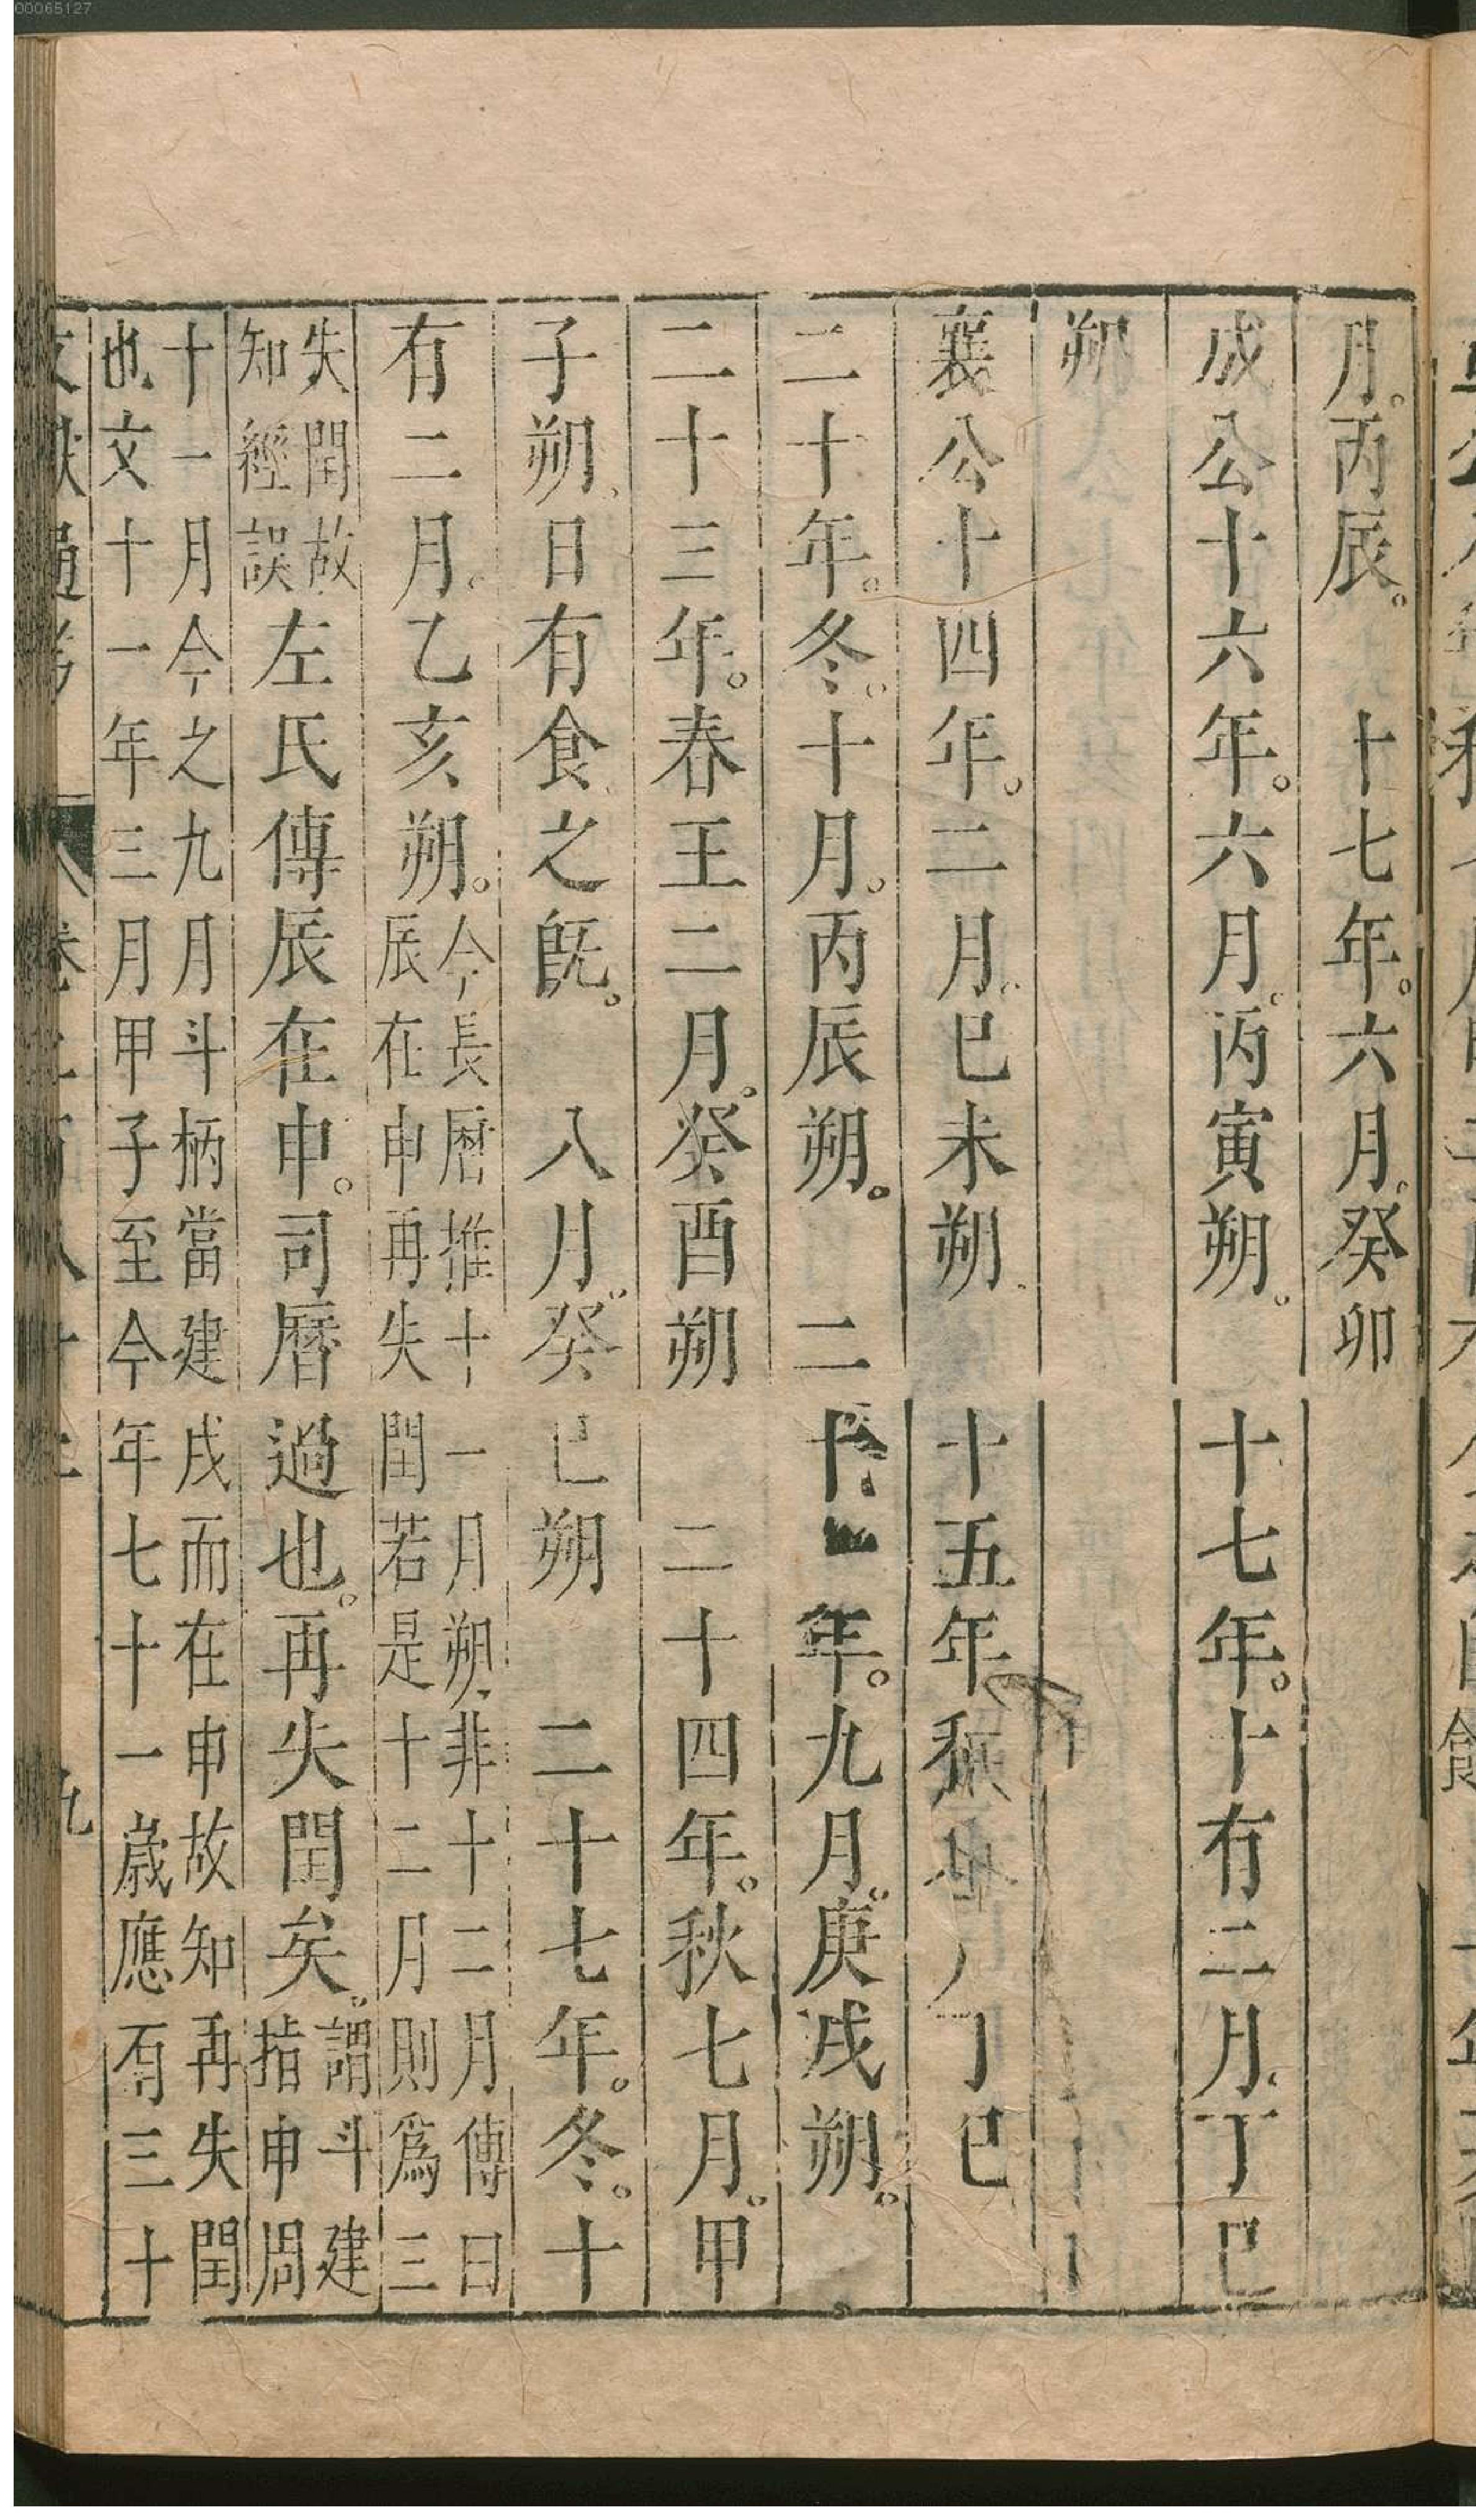 月。丙辰。　十七年。六月。癸卯
成公十六年。六月。丙寅朔。　十七年。十有二月。丁巳
朔
襄公十四年。二月。巳未朔　十五年秋　八　丁巳
二十年。冬。十月。丙辰朔。　二十一年。九月。庚戌朔。
二十三年。春王二月。癸酉朔　二十四年。秋七月。甲
子朔、日有食之旣。　八月。癸巳朔　二十七年。冬。十
有二月。乙亥朔。
今長曆推十一月朔非十二月傳曰
辰在申再失閏若是十二月則爲三
失閏故
知經誤
左氏傳辰在申。司曆過也。再失閏矣。
謂斗建
指申周
十一月今之九月斗柄當建戌而在申故知再失閏
也文十一年三月甲子至今年七十一歲應有三十
00065127